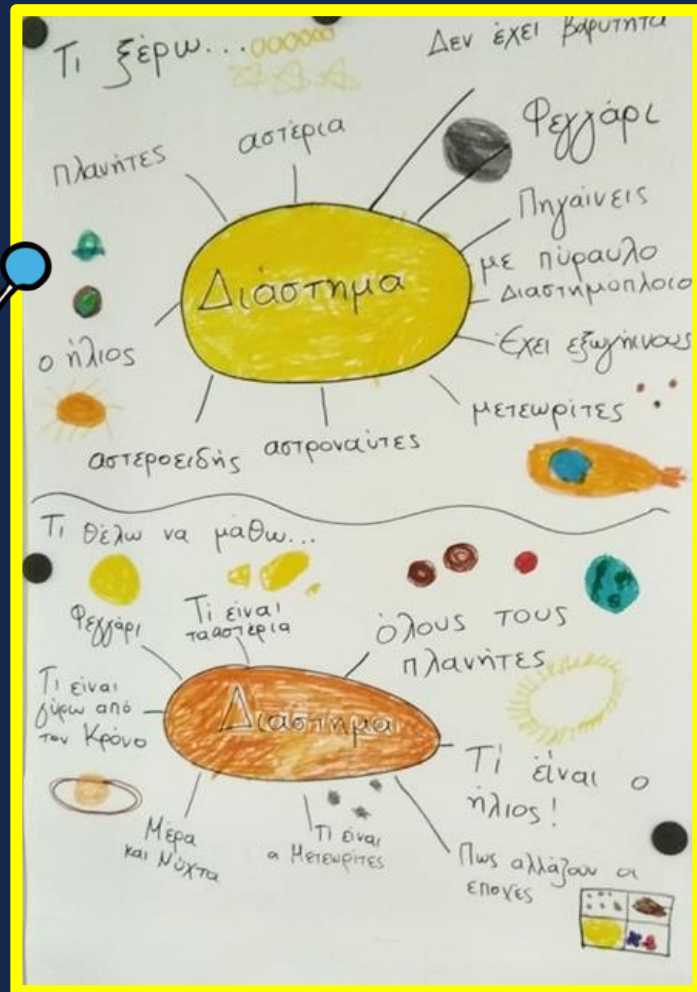 Τι ξέρω...
Δεν έχει βαρύτητα
πλανήτες
αστέρια
Φεγγάρι
Πηγαίνεις
με πύραυλο
Διαστημόπλοιο
Διάστημα
Έχει εξωγήινους
ο ήλιος
μετεωρίτες
αστεροειδής
αστροναύτες
Τι θέλω να μάθω...
Φεγγάρι
Τι είναι
τα αστέρια
όλους τους
πλανήτες
Τι είναι
γύρω από
τον Κρόνο
Διάστημα
Τι είναι ο
ήλιος!
Μέρα
και Νύχτα
Τι είναι
α Μετεωρίτες
Πως αλλάζουν οι
εποχές